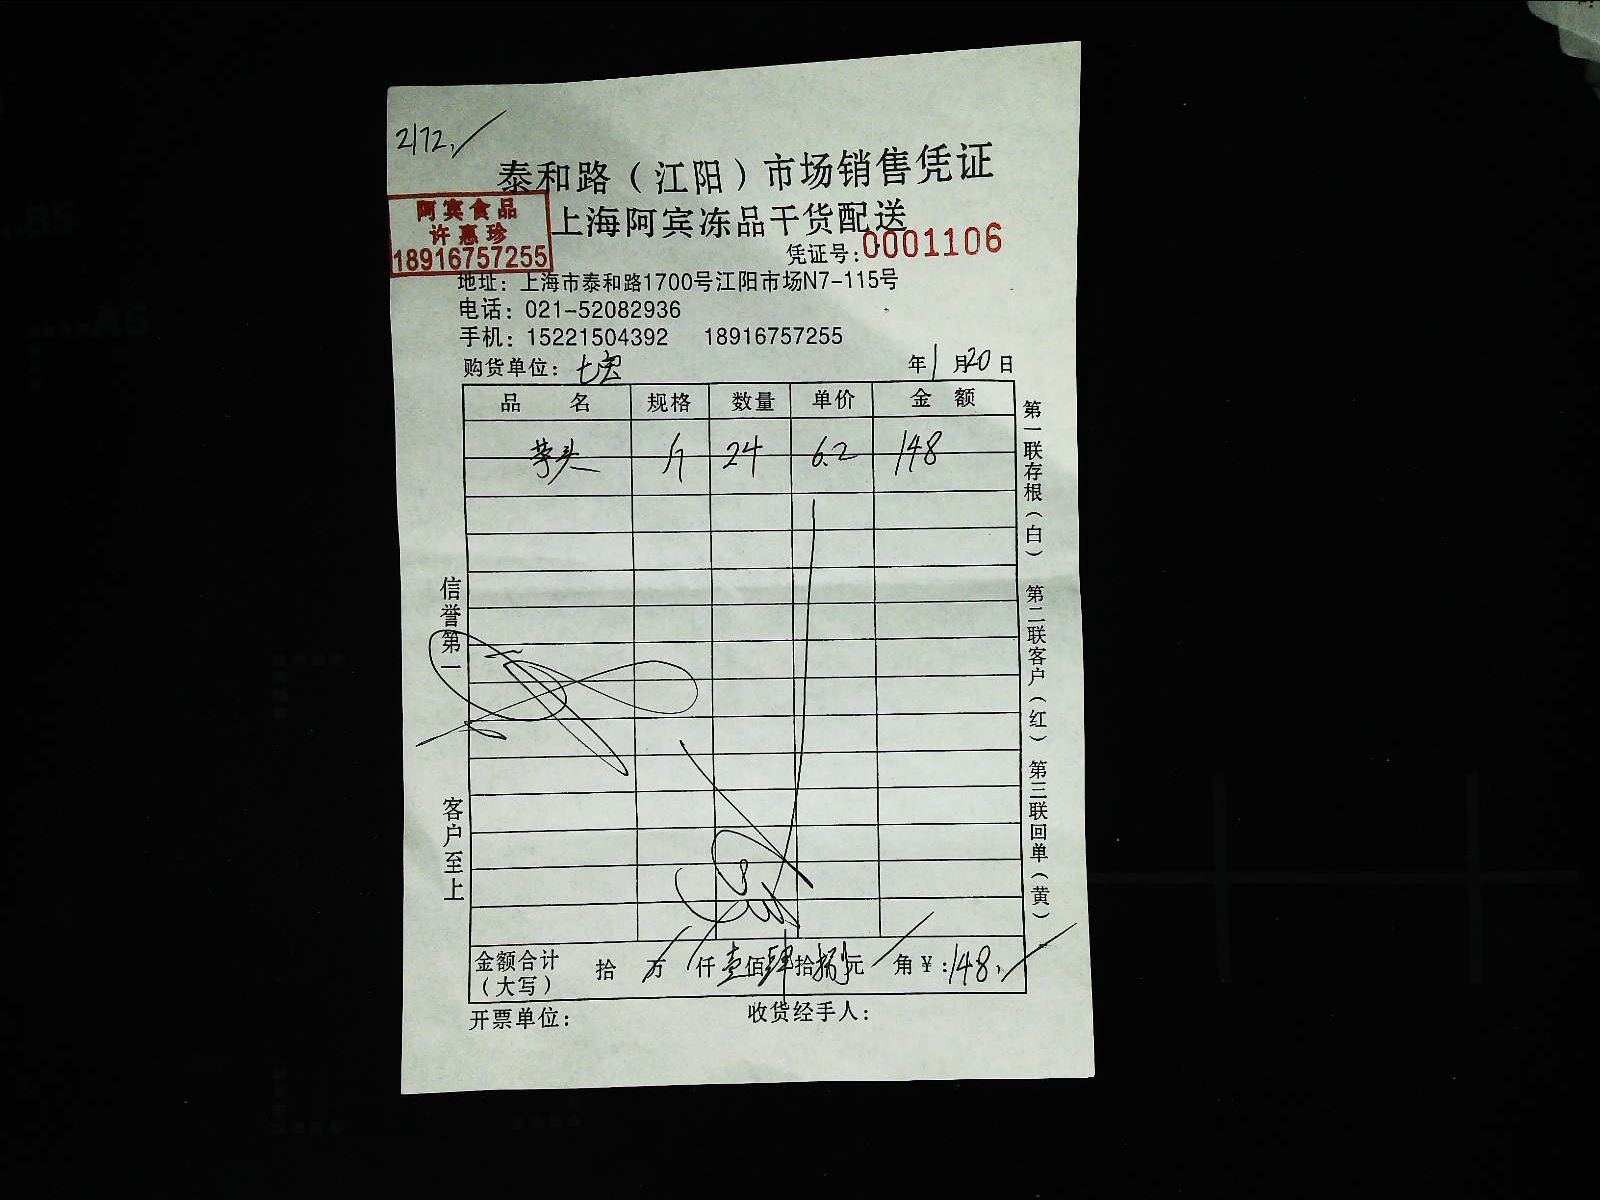 2172,
泰和路（江阳）市场销售凭证
阿宾食品
许惠珍
18916757255
上海阿宾冻品干货配送
凭证号:0001106
地址：上海市泰和路1700号江阳市场N7-115号
电话：021-52082936
手机：15221504392 18916757255
购货单位：七宝 年1月20日
品名 规格 数量 单价 金额
芋头 斤 24 6.2 148
信誉第一
客户至上
第一联存根（白） 第二联客户（红） 第三联回单（黄）
金额合计（大写） 拾 万 仟壹佰肆拾捌元 角￥:148,
开票单位： 收货经手人：